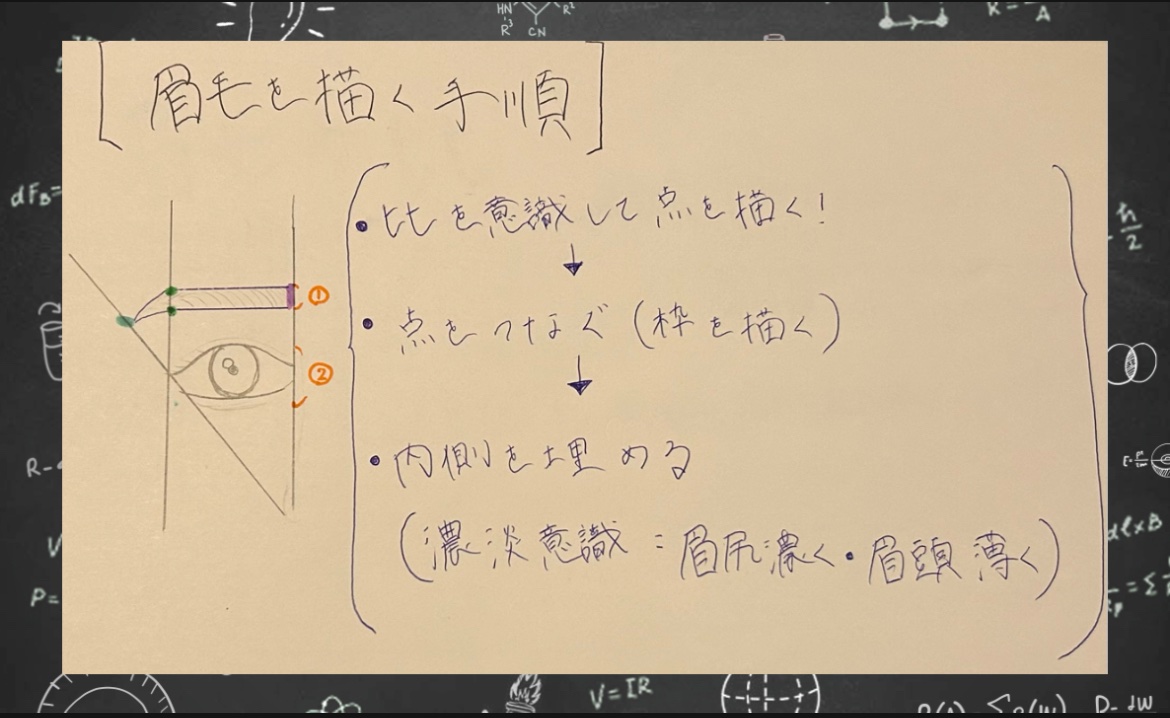 HN
R²
R³
CN
K=
A
[眉毛を描く手順]
dF_B=
・比を意識して点を描く!
↓
①
・点をつなぐ(枠を描く)
②
↓
・内側を埋める
(濃淡意識:眉尻濃く・眉頭薄く)
ℏ/2
R-
V
P=
dl×B
=Σ
V=IR